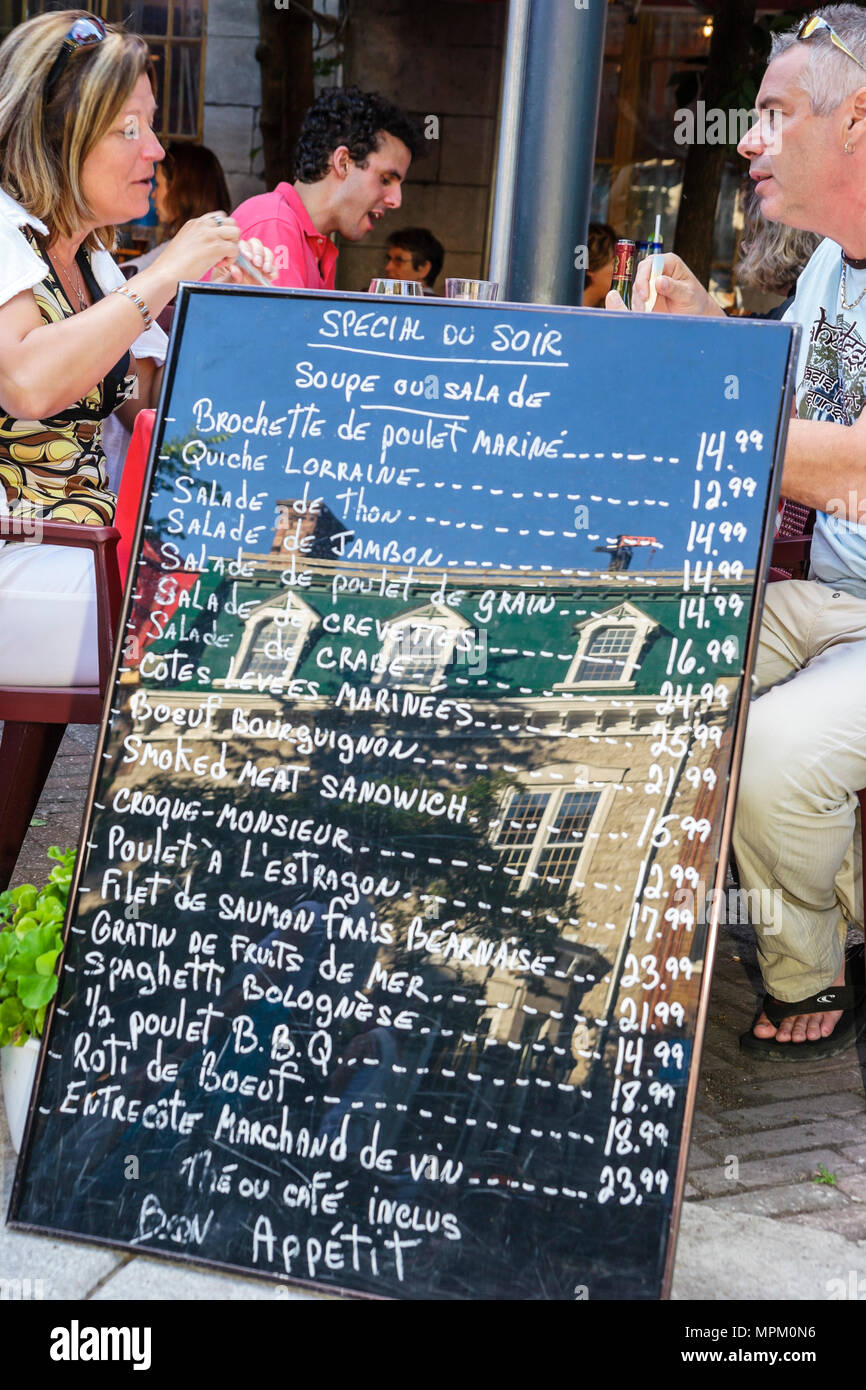 SPECIAL DU SOIR
SOUPE OU SALADE
- BROCHETTE DE POULET MARINÉ 14.99
- QUICHE LORRAINE 12.99
- SALADE DE THON 14.99
- SALADE DE JAMBON 14.99
- SALADE DE POULET DE GRAIN 14.99
- SALADE DE CREVETTES 16.99
- SALADE DE CRABE 24.99
- CÔTES LEVÉES MARINÉES 25.99
- BOEUF BOURGUIGNON 21.99
- SMOKED MEAT SANDWICH 15.99
- CROQUE-MONSIEUR 12.99
- POULET À L'ESTRAGON 17.99
- FILET DE SAUMON FRAIS BÉARNAISE 23.99
- GRATIN DE FRUITS DE MER 21.99
- SPAGHETTI BOLOGNÈSE 14.99
- 1/2 POULET B.B.Q. 18.99
- ROTI DE BOEUF 18.99
- ENTRECÔTE MARCHAND DE VIN 23.99
THÉ OU CAFÉ INCLUS
BON APPÉTIT
alamy
alamy
alamy
Image ID: MPM0N6
www.alamy.com